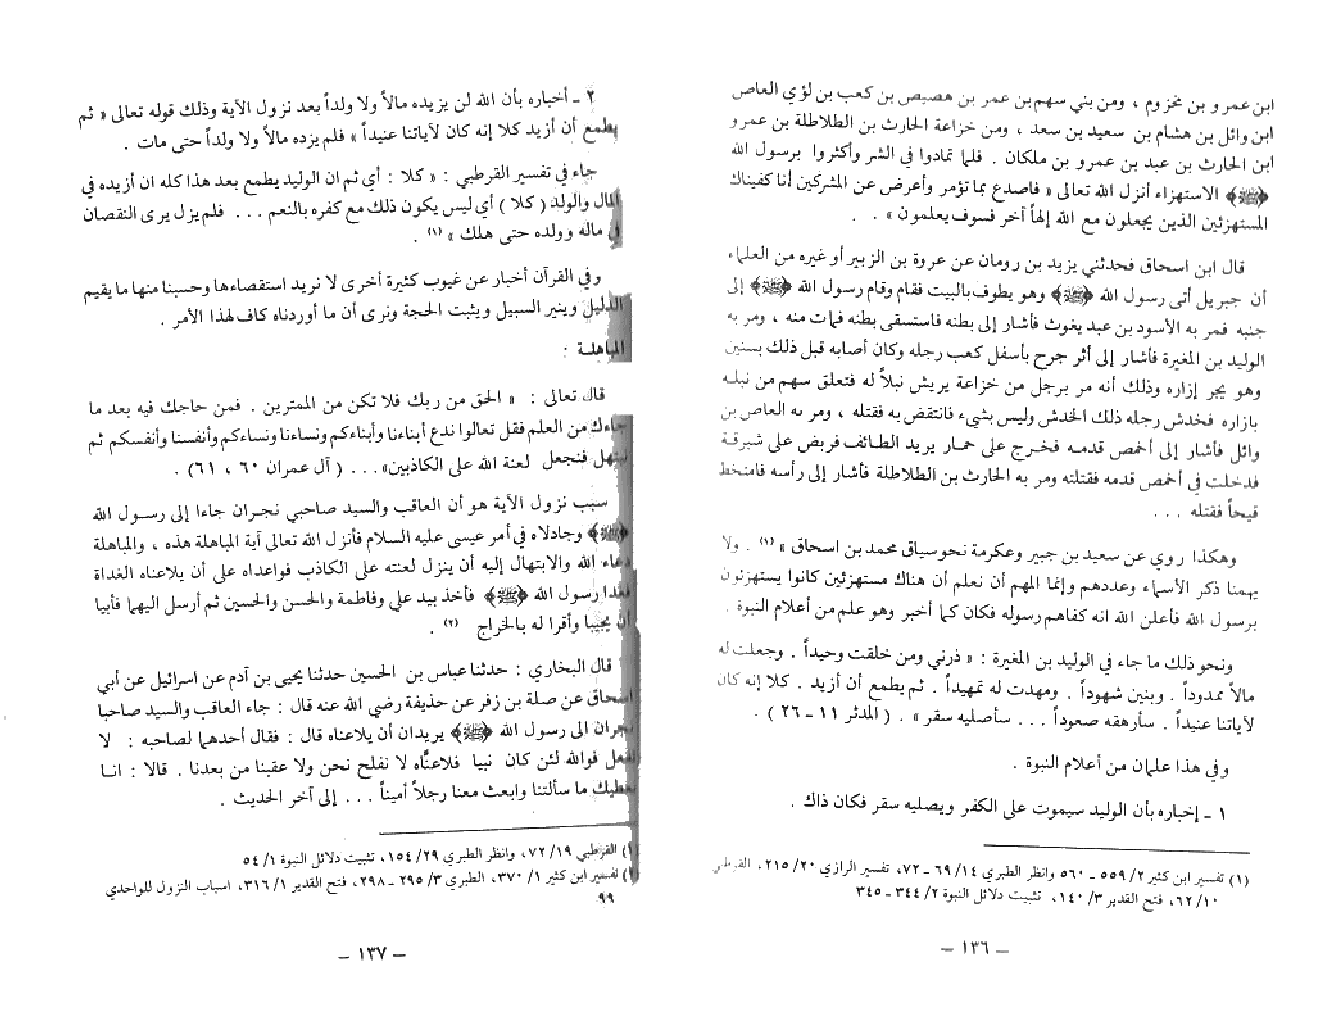 ابن عمرو بن مخزوم ، ومن بني سهم بن عمر بن هصيص بن كعب بن لؤي العاص
ابن وائل بن هشام بن سعيد بن سعد ، ومن خزاعة الحارث بن الطلاطلة بن عمرو
ابن الحارث بن عبد بن عمرو بن ملكان . فلما تمادوا في الشر وأكثروا برسول الله
﴿ﷺ﴾ الاستهزاء أنزل الله تعالى « فاصدع بما تؤمر وأعرض عن المشركين أنا كفيناك
المستهزئين الذين يجعلون مع الله إلهاً أخر فسوف يعلمون » . .
قال ابن اسحاق فحدثني يزيد بن رومان عن عروة بن الزبير أو غيره من العلماء
أن جبريل أتى رسول الله ﴿ﷺ﴾ وهو يطوف بالبيت فقام وقام رسول الله ﴿ﷺ﴾ إلى
جنبه فمر به الأسود بن عبد يغوث فأشار إلى بطنه فاستسقى بطنه فمات منه ، ومر به
الوليد بن المغيرة فأشار إلى أثر جرح بأسفل كعب رجله وكان أصابه قبل ذلك بسنين
وهو يجر إزاره وذلك أنه مر برجل من خزاعة يريش نبلاً له فتعلق سهم من نبله
بازاره فخدش رجله ذلك الخدش وليس بشيء فانتقض به فقتله ، ومر به العاص بن
وائل فأشار إلى أخمص قدمه فخرج على حمار يريد الطائف فربض على شبرقة
فدخلت في أخمص قدمه فقتلته ومر به الحارث بن الطلاطلة فأشار إلى رأسه فامتخط
قيحاً فقتله . . .
وهكذا روي عن سعيد بن جبير وعكرمة نحو سياق محمد بن اسحاق » (١) . ولا
يهمنا ذكر الأسماء وعددهم وإنما المهم أن نعلم أن هناك مستهزئين كانوا يستهزئون
برسول الله فأعلن الله انه كفاهم رسوله فكان كما أخبر وهو علم من أعلام النبوة .
ونحو ذلك ما جاء في الوليد بن المغيرة : « ذرني ومن خلقت وحيداً . وجعلت له
مالاً ممدوداً . وبنين شهوداً . ومهدت له تمهيداً . ثم يطمع أن أزيد . كلا إنه كان
لآياتنا عنيداً . سأرهقه صعوداً . . . سأصليه سقر » . ( المدثر ١١ - ٢٦ ) .
وفي هذا علمان من أعلام النبوة .
١ - إخباره بأن الوليد سيموت على الكفر ويصليه سقر فكان ذاك .
(١) تفسير ابن كثير ٢/ ٥٥٩ - ٥٦٠ وانظر الطبري ١٤/ ٦٩ - ٧٢، تفسير الرازي ٢٠/ ٢١٥، القرطبي
١٠/ ٦٢، فتح القدير ٣/ ١٤٠، تثبيت دلائل النبوة ٢/ ٣٤٤ - ٣٤٥
– ١٣٦ –
٢ - أخباره بأن الله لن يزيده مالاً ولا ولداً بعد نزول الآية وذلك قوله تعالى « ثم
يطمع أن أزيد كلا إنه كان لآياتنا عنيداً » فلم يزده مالاً ولا ولداً حتى مات .
جاء في تفسير القرطبي : « كلا : أي ثم ان الوليد يطمع بعد هذا كله ان أزيده في
المال والولد ( كلا ) أي ليس يكون ذلك مع كفره بالنعم . . . فلم يزل يرى النقصان
في ماله وولده حتى هلك » (١) .
وفي القرآن أخبار عن غيوب كثيرة أخرى لا نريد استقصاءها وحسبنا منها ما يقيم
الدليل وينير السبيل ويثبت الحجة ونرى أن ما أوردناه كاف لهذا الأمر .
المباهلة :
قال تعالى : « الحق من ربك فلا تكن من الممترين . فمن حاجك فيه بعد ما
جاءك من العلم فقل تعالوا ندع أبناءنا وأبناءكم ونساءنا ونساءكم وأنفسنا وأنفسكم ثم
نبتهل فنجعل لعنة الله على الكاذبين» . . . ( آل عمران ٦٠ ، ٦١ ) .
سبب نزول الآية هو أن العاقب والسيد صاحبي نجران جاءا إلى رسول الله
﴿ﷺ﴾ وجادلاه في أمر عيسى عليه السلام فأنزل الله تعالى آية المباهلة هذه ، والمباهلة
دعاء الله والابتهال إليه أن ينزل لعنته على الكاذب فواعداه على أن يلاعناه الغداة
فغدا رسول الله ﴿ﷺ﴾ فأخذ بيد علي وفاطمة والحسن والحسين ثم أرسل اليهما فأبيا
أن يجيبا وأقرا له بالخراج (٢) .
قال البخاري : حدثنا عباس بن الحسين حدثنا يحيى بن آدم عن اسرائيل عن أبي
اسحاق عن صلة بن زفر عن حذيفة رضي الله عنه قال : جاء العاقب والسيد صاحبا
نجران الى رسول الله ﴿ﷺ﴾ يريدان أن يلاعناه قال : فقال أحدهما لصاحبه : لا
تفعل فوالله لئن كان نبيا فلاعنّاه لا نفلح نحن ولا عقبنا من بعدنا . قالا : انا
نعطيك ما سألتنا وابعث معنا رجلاً أميناً . . . إلى آخر الحديث .
(١) القرطبي ١٩/ ٧٢، وانظر الطبري ٢٩/ ١٥٤، تثبيت دلائل النبوة ١/ ٥٤
(٢) تفسير ابن كثير ١/ ٣٧٠، الطبري ٣/ ٢٩٥ - ٢٩٨، فتح القدير ١/ ٣١٦، اسباب النزول للواحدي
٩٩
– ١٣٧ –